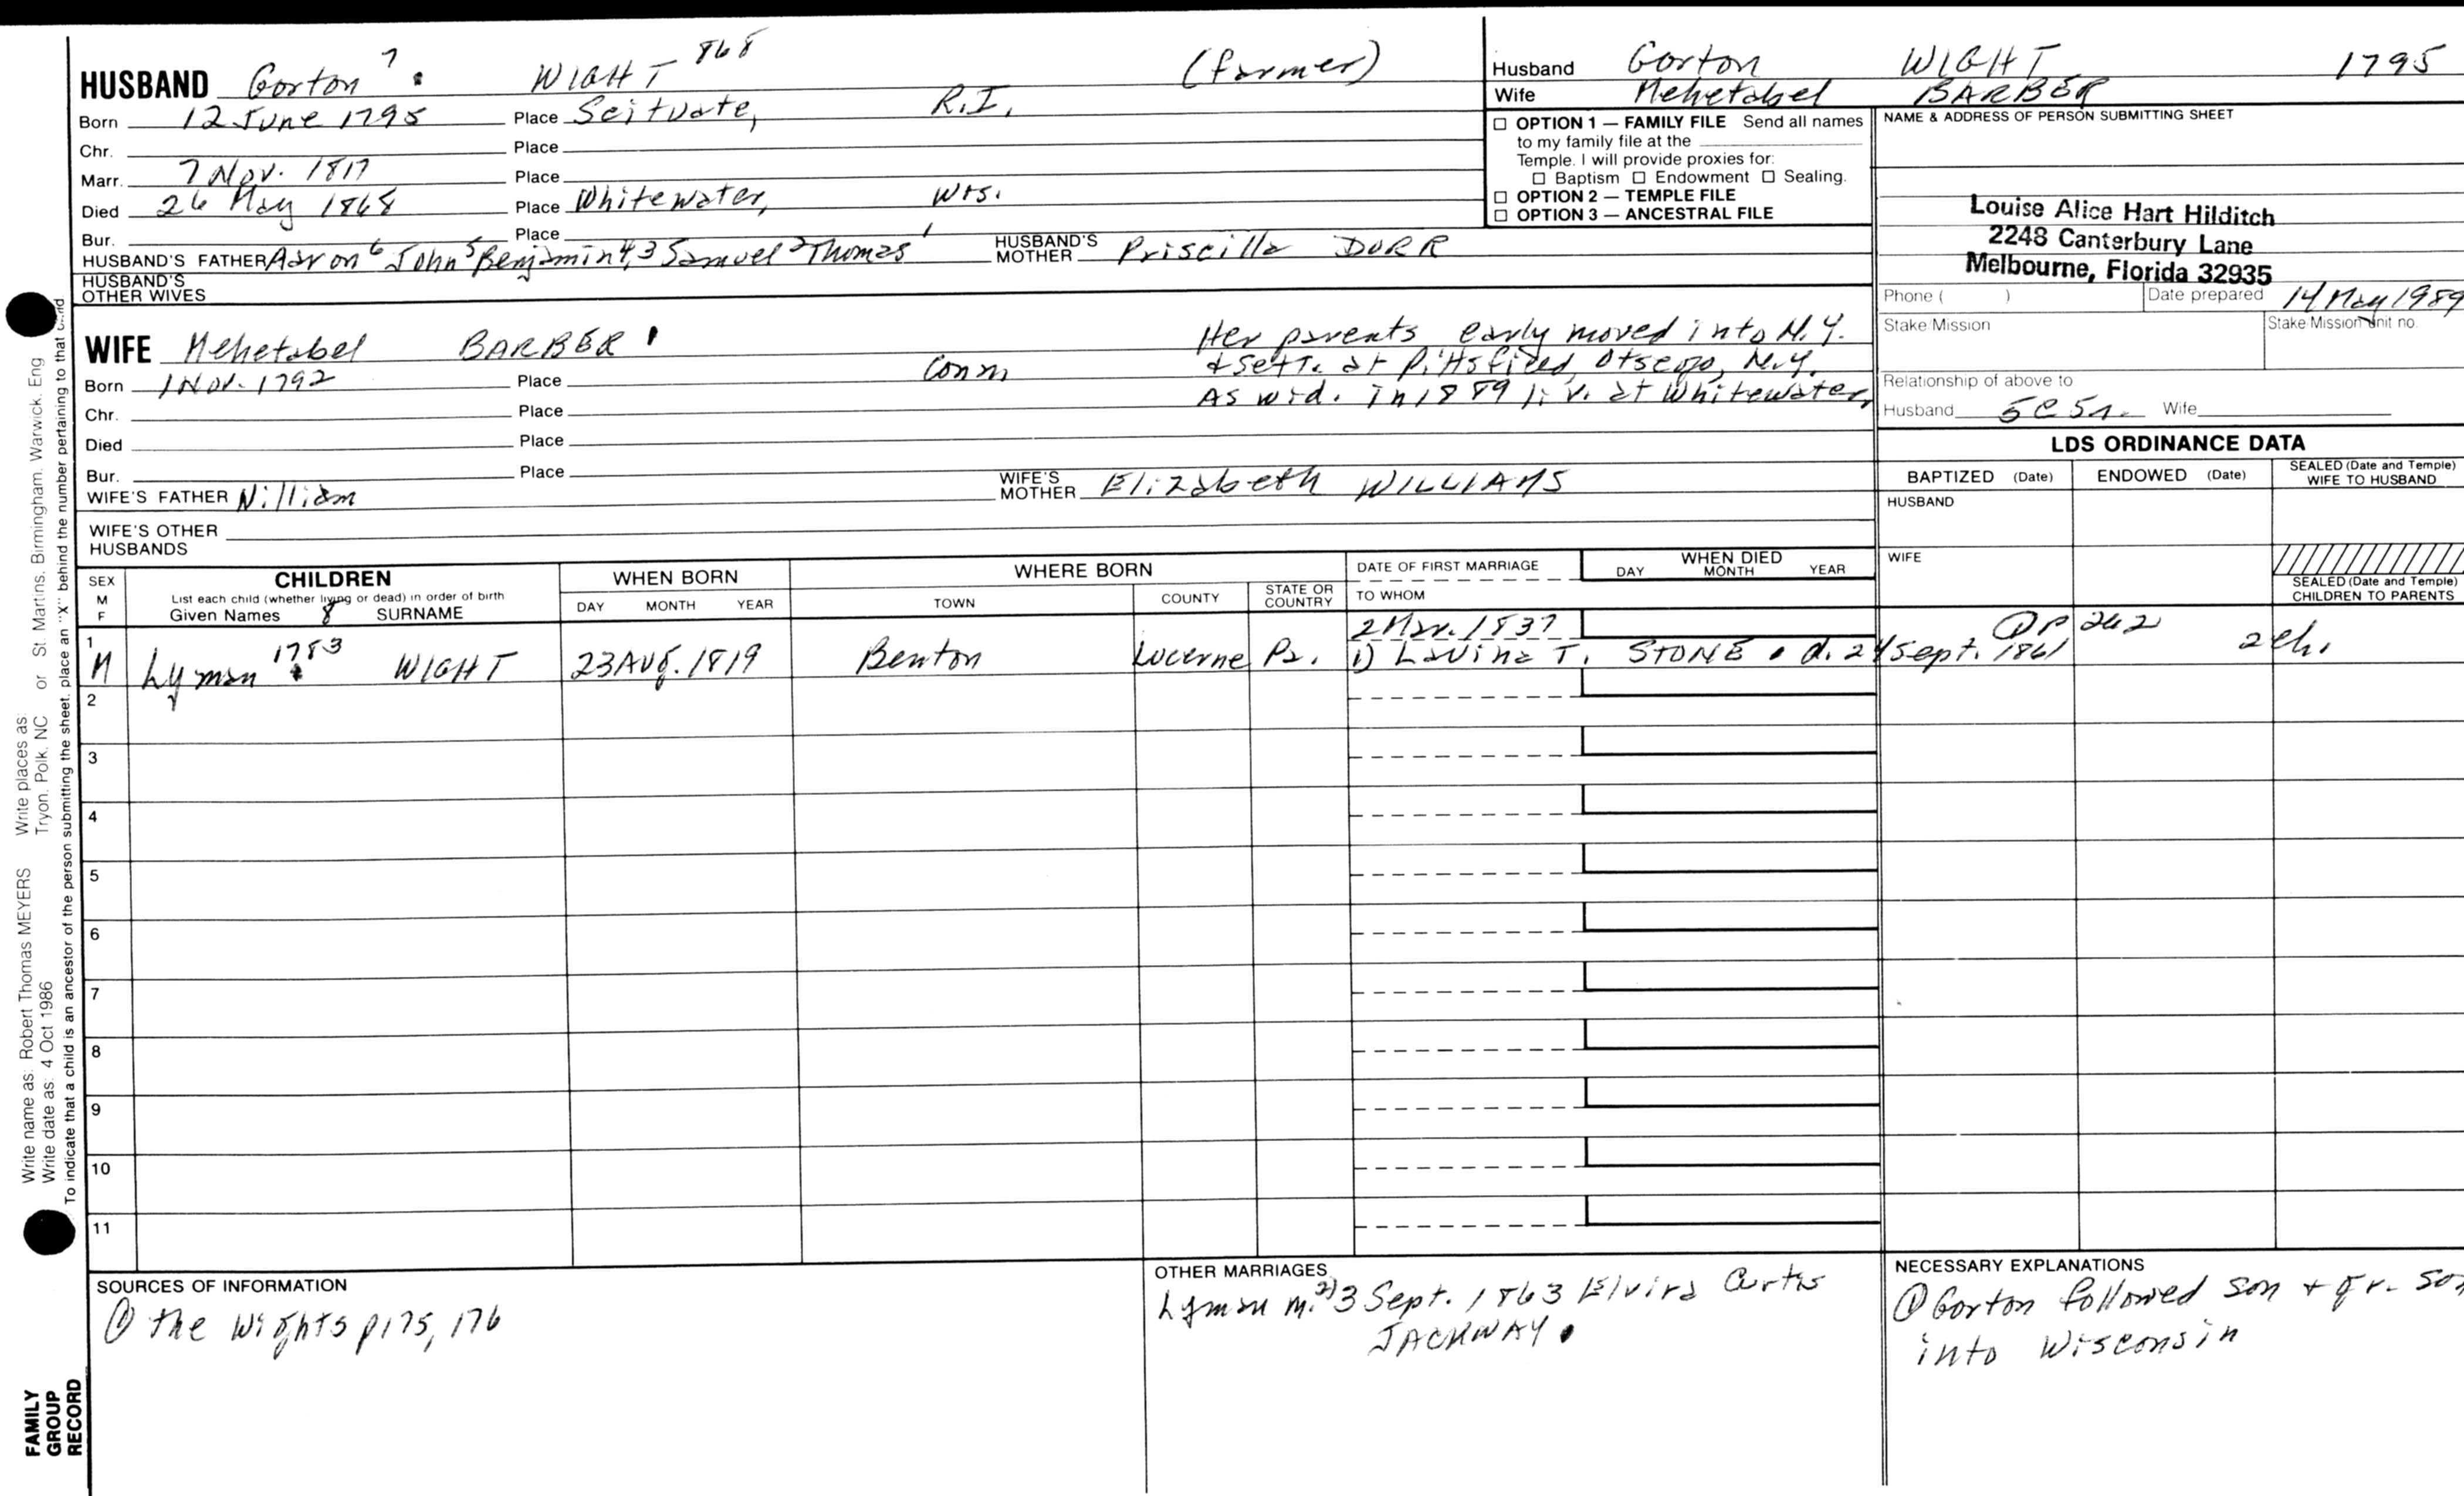 HUSBAND Gorton 7 WIGHT 868 (farmer)
Born 12 June 1795 Place Scituate, R.I.
Chr. Place
Marr. 7 Nov. 1817 Place
Died 26 May 1868 Place Whitewater, Wis.
Bur. Place
HUSBAND'S FATHER Aaron 6 John 5 Benjamin 4,3 Samuel 2 Thomas 1 HUSBAND'S MOTHER Priscilla DORR
HUSBAND'S OTHER WIVES
Husband Gorton WIGHT 1795
Wife Mehetabel BARBER
☐ OPTION 1 — FAMILY FILE Send all names
to my family file at the
Temple. I will provide proxies for:
☐ Baptism ☐ Endowment ☐ Sealing.
☐ OPTION 2 — TEMPLE FILE
☐ OPTION 3 — ANCESTRAL FILE
NAME & ADDRESS OF PERSON SUBMITTING SHEET
Louise Alice Hart Hilditch
2248 Canterbury Lane
Melbourne, Florida 32935
Phone ( ) Date prepared 14 May 1989
Stake Mission Stake Mission Unit no.
Relationship of above to
Husband 5C5r Wife
WIFE Mehetabel BARBER
Her parents early moved into N.Y.
& sett. at Pittsfield, Otsego, N.Y.
As wid. in 1889 liv. at Whitewater,
Born 1 Nov. 1792 Place Conn
Chr. Place
Died Place
Bur. Place
WIFE'S FATHER William WIFE'S MOTHER Elizabeth WILLIAMS
WIFE'S OTHER
HUSBANDS
LDS ORDINANCE DATA
BAPTIZED (Date) ENDOWED (Date) SEALED (Date and Temple) WIFE TO HUSBAND
HUSBAND
WIFE
SEALED (Date and Temple) CHILDREN TO PARENTS
SEX M F
CHILDREN
List each child (whether living or dead) in order of birth
Given Names 8 SURNAME
WHEN BORN
DAY MONTH YEAR
WHERE BORN
TOWN COUNTY STATE OR COUNTRY
DATE OF FIRST MARRIAGE
TO WHOM
WHEN DIED
DAY MONTH YEAR
1 2 Mar. 1837 P 262
M Lyman 1783 WIGHT 23 Aug. 1819 Benton Lucerne Pa. 1) Lavina T. STONE d. 24 Sept. 1861 2ch.
2
3
4
5
6
7
8
9
10
11
SOURCES OF INFORMATION
① The Wights p175, 176
OTHER MARRIAGES
Lyman m. 2) 3 Sept. 1863 Elvira Curtis
JACKWAY
NECESSARY EXPLANATIONS
① Gorton followed son + gr. son
into Wisconsin
Write name as: Robert Thomas MEYERS Write places as: St. Martins, Birmingham, Warwick, Eng
Write date as: 4 Oct 1986 Tryon, Polk, NC or
To indicate that a child is an ancestor of the person submitting the sheet, place an "X" behind the number pertaining to that child
FAMILY
GROUP
RECORD